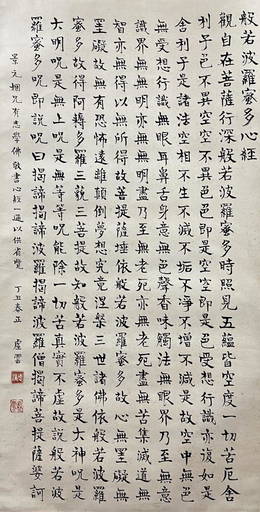 般若波羅蜜多心經
觀自在菩薩行深般若波羅蜜多時照見五蘊皆空度一切苦厄舍
利子色不異空空不異色色即是空空即是色受想行識亦復如是
舍利子是諸法空相不生不滅不垢不淨不增不減是故空中無色
無受想行識無眼耳鼻舌身意無色聲香味觸法無眼界乃至無意
識界無無明亦無無明盡乃至無老死亦無老死盡無苦集滅道無
智亦無得以無所得故菩提薩埵依般若波羅蜜多故心無罣礙無
罣礙故無有恐怖遠離顛倒夢想究竟涅槃三世諸佛依般若波羅
蜜多故得阿耨多羅三藐三菩提故知般若波羅蜜多是大神咒是
大明咒是無上咒是無等等咒能除一切苦真實不虛故說般若波
羅蜜多咒即說咒曰揭諦揭諦波羅揭諦波羅僧揭諦菩提薩婆訶
景文姻兄有志學佛敬書心經一通以供省覽 丁丑春正 虛雲